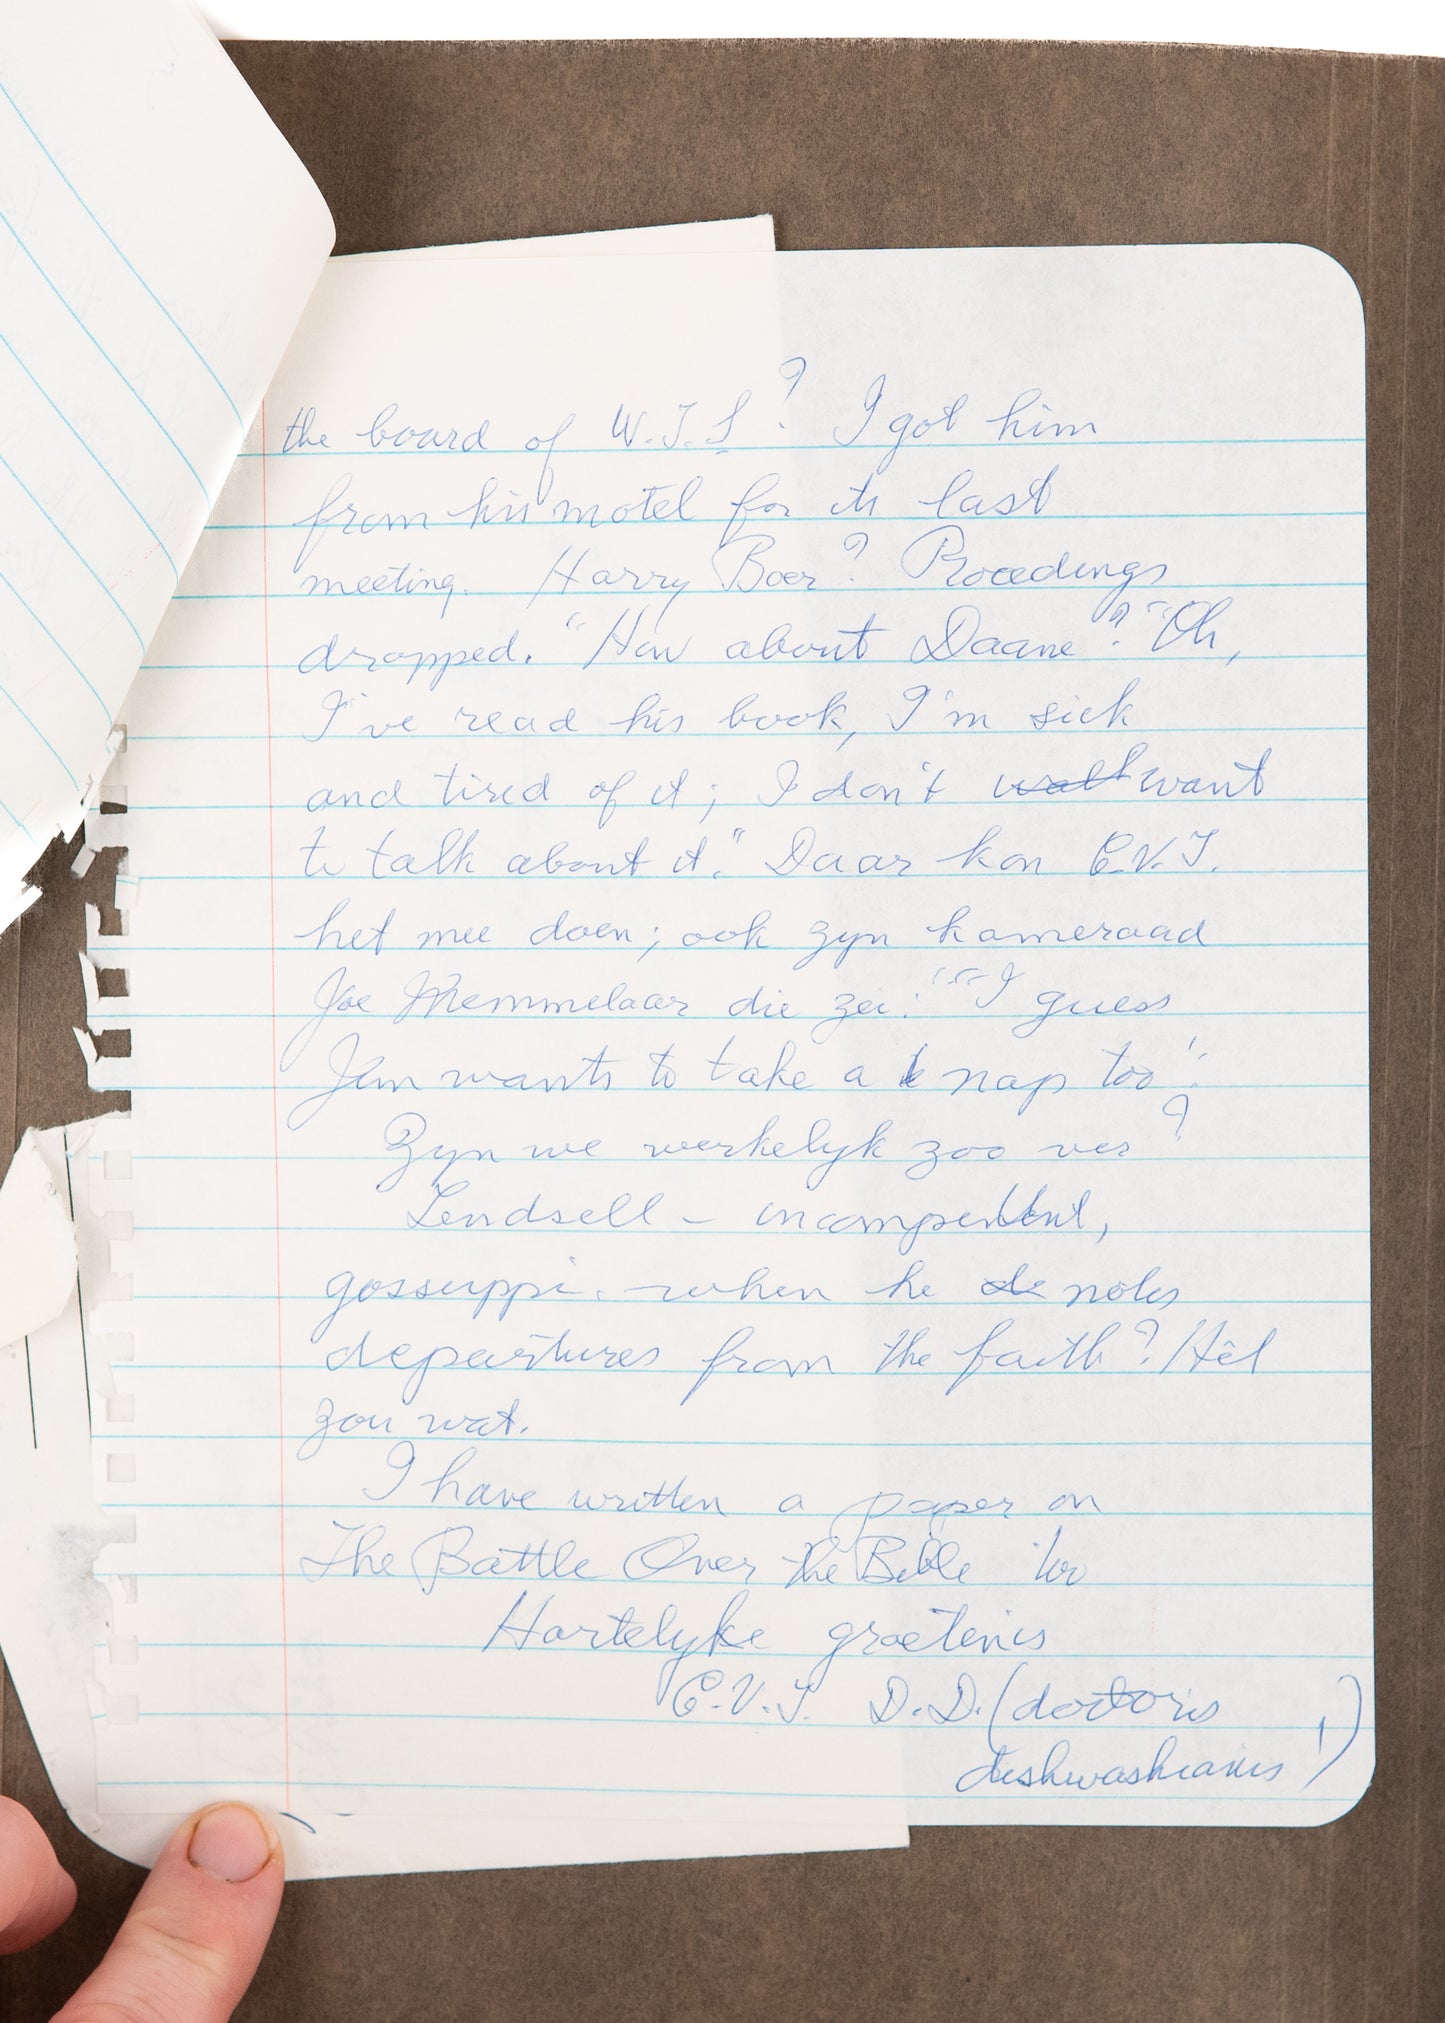 the board of W.T.S? I got him
from his motel for its last
meeting. Harry Boer? Proceedings
dropped. "How about Daane"? "Oh,
I've read his book, I'm sick
and tired of it; I don't want
to talk about it." Daar kon C.V.T.
het mee doen; ook zyn kameraad
Joe Memmelaar die zei: "I guess
Jim wants to take a nap too".
Zyn we werkelyk zoo ver?
Lindsell – incompentent,
gossippi. when he notes
departures from the faith? Hêl
zou wat.
I have written a paper on
The Battle Over the Bible too
Hartelyke groetenis
C.V.T. D.D. (doctoris
dishwashianis!)